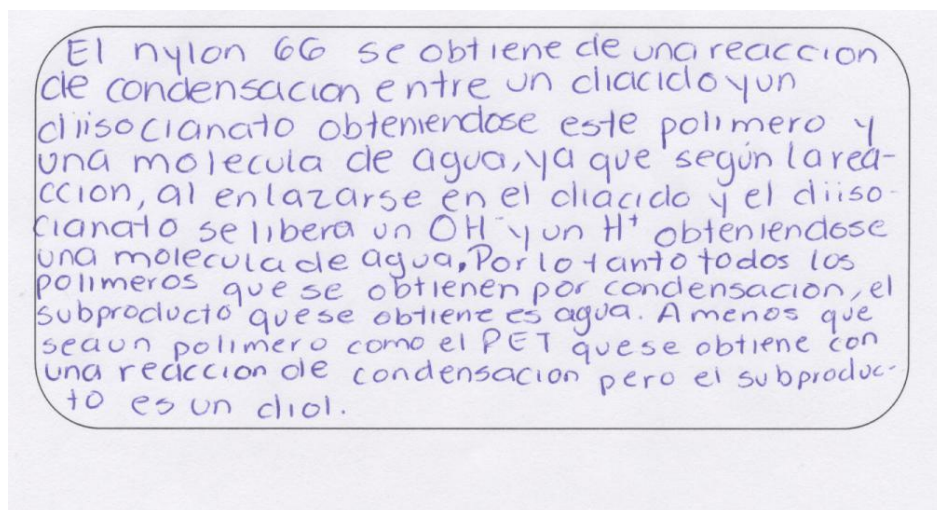 El nylon 66 se obtiene de una reaccion
de condensacion entre un diacido y un
diisocianato obteniendose este polimero y
una molecula de agua, ya que según la rea-
ccion, al enlazarse en el diacido y el diiso-
cianato se libera un OH⁻ y un H⁺ obteniendose
una molecula de agua, Por lo tanto todos los
polimeros que se obtienen por condensacion, el
subproducto que se obtiene es agua. A menos que
sea un polimero como el PET que se obtiene con
una reaccion de condensacion pero el subproduc-
to es un diol.